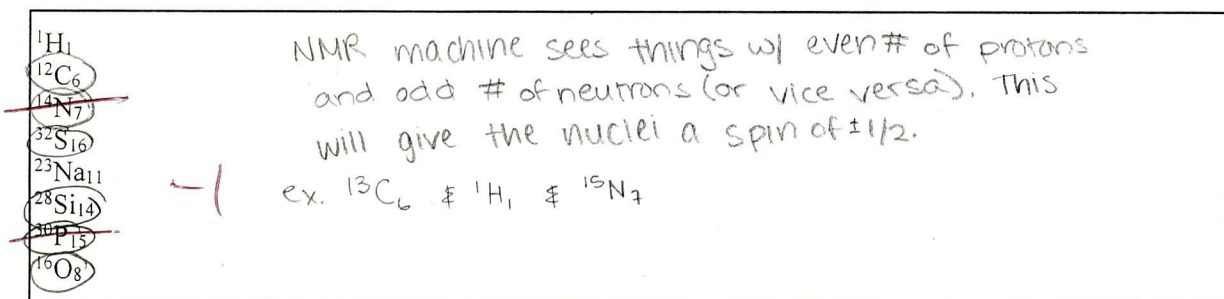 ¹H₁
¹²C₆
¹⁴N₇
³²S₁₆
²³Na₁₁
²⁸Si₁₄
³⁰P₁₅
¹⁶O₈
NMR machine sees things w/ even # of protons
and odd # of neutrons (or vice versa). This
will give the nuclei a spin of ±1/2.
-1
ex. ¹³C₆ & ¹H₁ & ¹⁵N₇